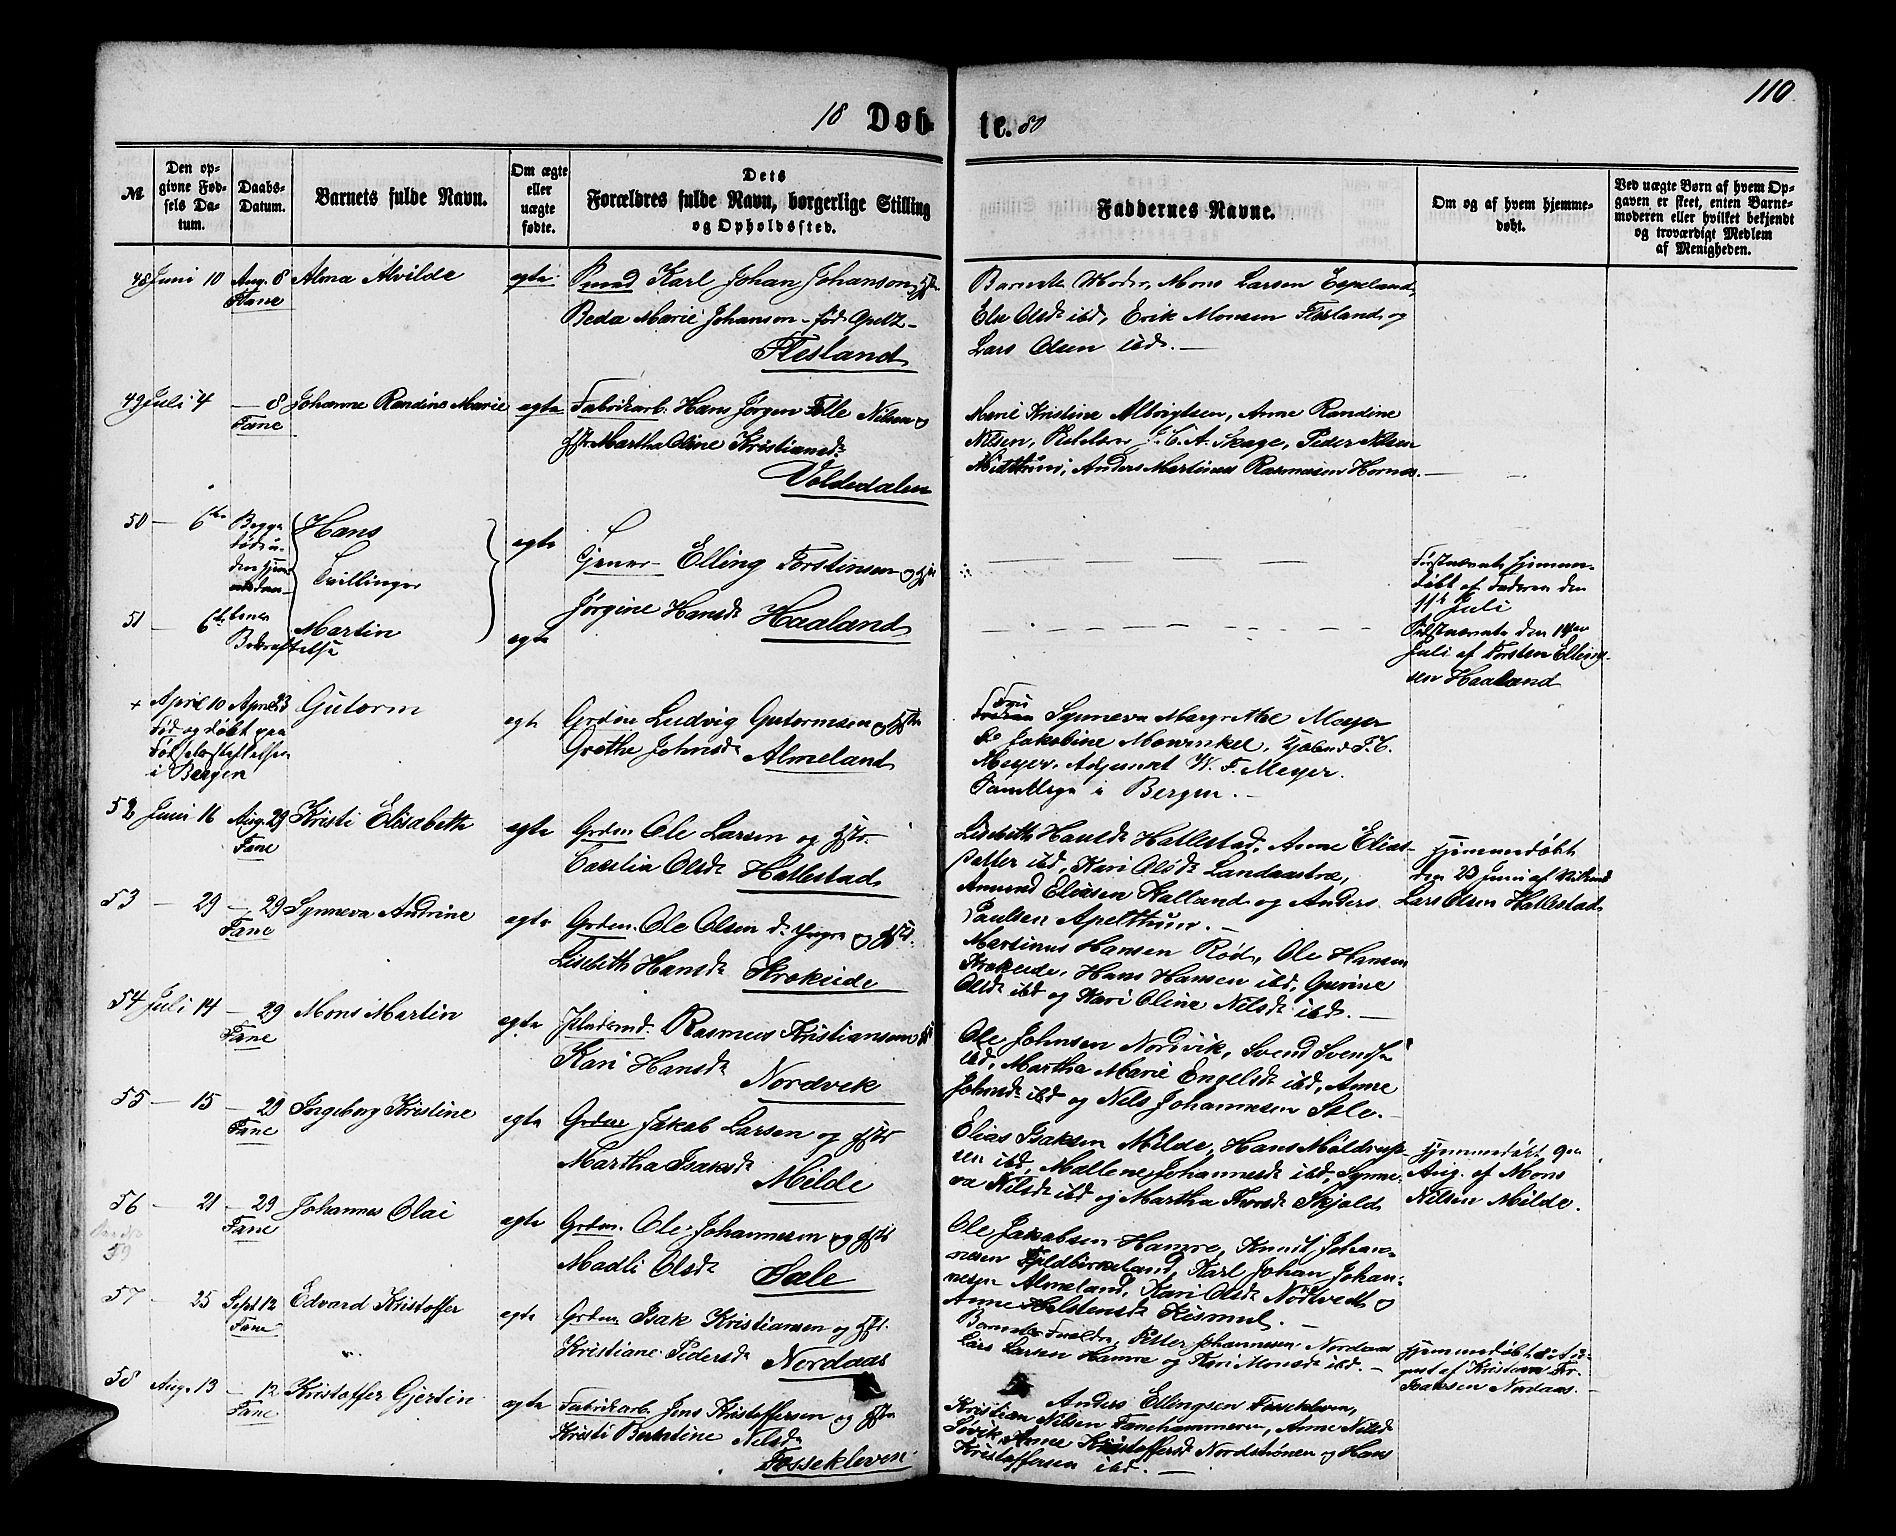 110
18 Døb- te. 80
№
Den op-
givne Fød-
sels Da-
tum.
Daabs-
Datum.
Barnets fulde Navn.
Om ægte
eller
uægte
fødte.
Dets
Forældres fulde Navn, borgerlige Stilling
og Opholdssted.
Faddernes Navne.
Om og af hvem hjemme-
døbt.
Ved uægte Børn af hvem Op-
gaven er skeet, enten Barne-
moderen eller hvilket bekjendt
og troværdigt Medlem
af Menigheden.
48 Juni 10 Aug. 8 Alma Alvilde egte Karl Johan Johanson
Fane
Beda Marie Johanson - fød Opetz -
Flesland
Barnets Moder, Mons Larsen Espeland,
Olsdr ibd, Erik Monsen Flesland og
Lars Olsen ibd. -
49 Juli 4 - 8 Johanne Randine Marie egte Fabrikarb. Hans Jørgen Nilsen og
Fane
Hstr Martha Oline Kristiansdr
Voldedalen
Marie Kristine Albrigtsen, Anne Randine
Nilsen, J. C. A. Skage, Peder Nilsen
Midttun, Anders Martinus Rasmussen
50 - 6te Begge Hans egte
døde u-
Tvillinger
Elling Torstensen og
Jørgine Hansdr Haaland
hjemme-
døbt af Faderen den
11te Juli
51 - 6te Martin egte
Bekræftelse
den 14de
Juli af Torsten Elling-
sen Haaland
+ April 10 April 23 Gutorm egte Grdm Ludvig Gutormsen og Hstr
Fød og døbt paa
Fødselsstiftelsen
i Bergen
Grethe Johnsdr Almeland
Fru
Synneva Margrethe Meyer
Jakobine Mowinkel, Kjøbmd F. C.
Meyer, Adjunct W. F. Meyer.
Samtlige i Bergen. -
52 Juni 16 Aug. 29 Kristi Elisabeth egte Grdm Ole Larsen og Hstr
Fane
Cecilia Olsdr Hallestad
Lisbeth Hansdr Hallestad, Anne Elias-
datter ibd, Kari Olsdr Landaastræ,
Amund Eliasen Halland og Anders
Paulsen Apeltun. -
Hjemmedøbt
den 23 Juni af
Lars Olsen Hallestad
53 - 29 - 29 Synneva Andrine egte Grdm. Ole Olsen d. yngre og Hstr.
Fane
Lisbeth Hansdr Krokeide
Martinus Hansen Rød, Ole Hansen
Krokeide, Hans Hansen ibd, Gurine
Olsdr ibd og Kari Oline Nilsdr ibd. -
54 Juli 14 - 29 Mons Martin egte Pladsmd. Rasmus Kristiansen
Fane
Kari Hansdr
Nordvik
Ole Johnsen Nordvik, Svend Svends.
ibd, Martha Marie Engelsdr ibd, Anne
Johnsdr ibd og Nils Johannesen Sæle. -
55 - 15 - 29 Ingeborg Kristine egte Grdm Jakob Larsen og Hstr
Fane
Martha Isaksdr
Milde
Elias Isaksen Milde, Hans
sen ibd, Mallene Johannesdr ibd, Synne-
va Nilsdr ibd og Martha Skjold
Hjemmedøbt 9de
Aug. af Mons
Nilsen Milde.
56 - 21 - 29 Johannes Olai egte Grdm. Ole Johannesen og Hstr
Fane
59
Madli Olsdr
Sæle
Ole Jakobsen Hamre, Knud Johan-
nesen Fjeldbirkeland, Karl Johan Johan-
nesen Almeland, Kari Olsdr Nødtvedt og
Anne Halstensdr Kismul. -
57 - 25 Sept 12 Edvard Kristoffer egte Grdm Isak Kristiansen og Hstr.
Fane
Kristiane Pedersdr
Nordaas
Barnets Forældre, Peter Johannesen Nordaas
Lars Larsen Hamre og Kari Monsdr ibd. -
Hjemmedøbt
af Kristian
Isaksen Nordaas.
58 Aug. 13 - 12 Kristoffer Gjertin egte Fabrikarb. Jens Kristoffersen og Hstr
Fane
Kristi Bertine Nilsdr
Fossekleven
Anders Ellingsen Fossekleven,
Kristian Nilsen Fanehammeren, Anne Nilsdr
Søvik, Anne Kristoffersdr Nordstrønen og Hans
Kristoffersen ibd. -